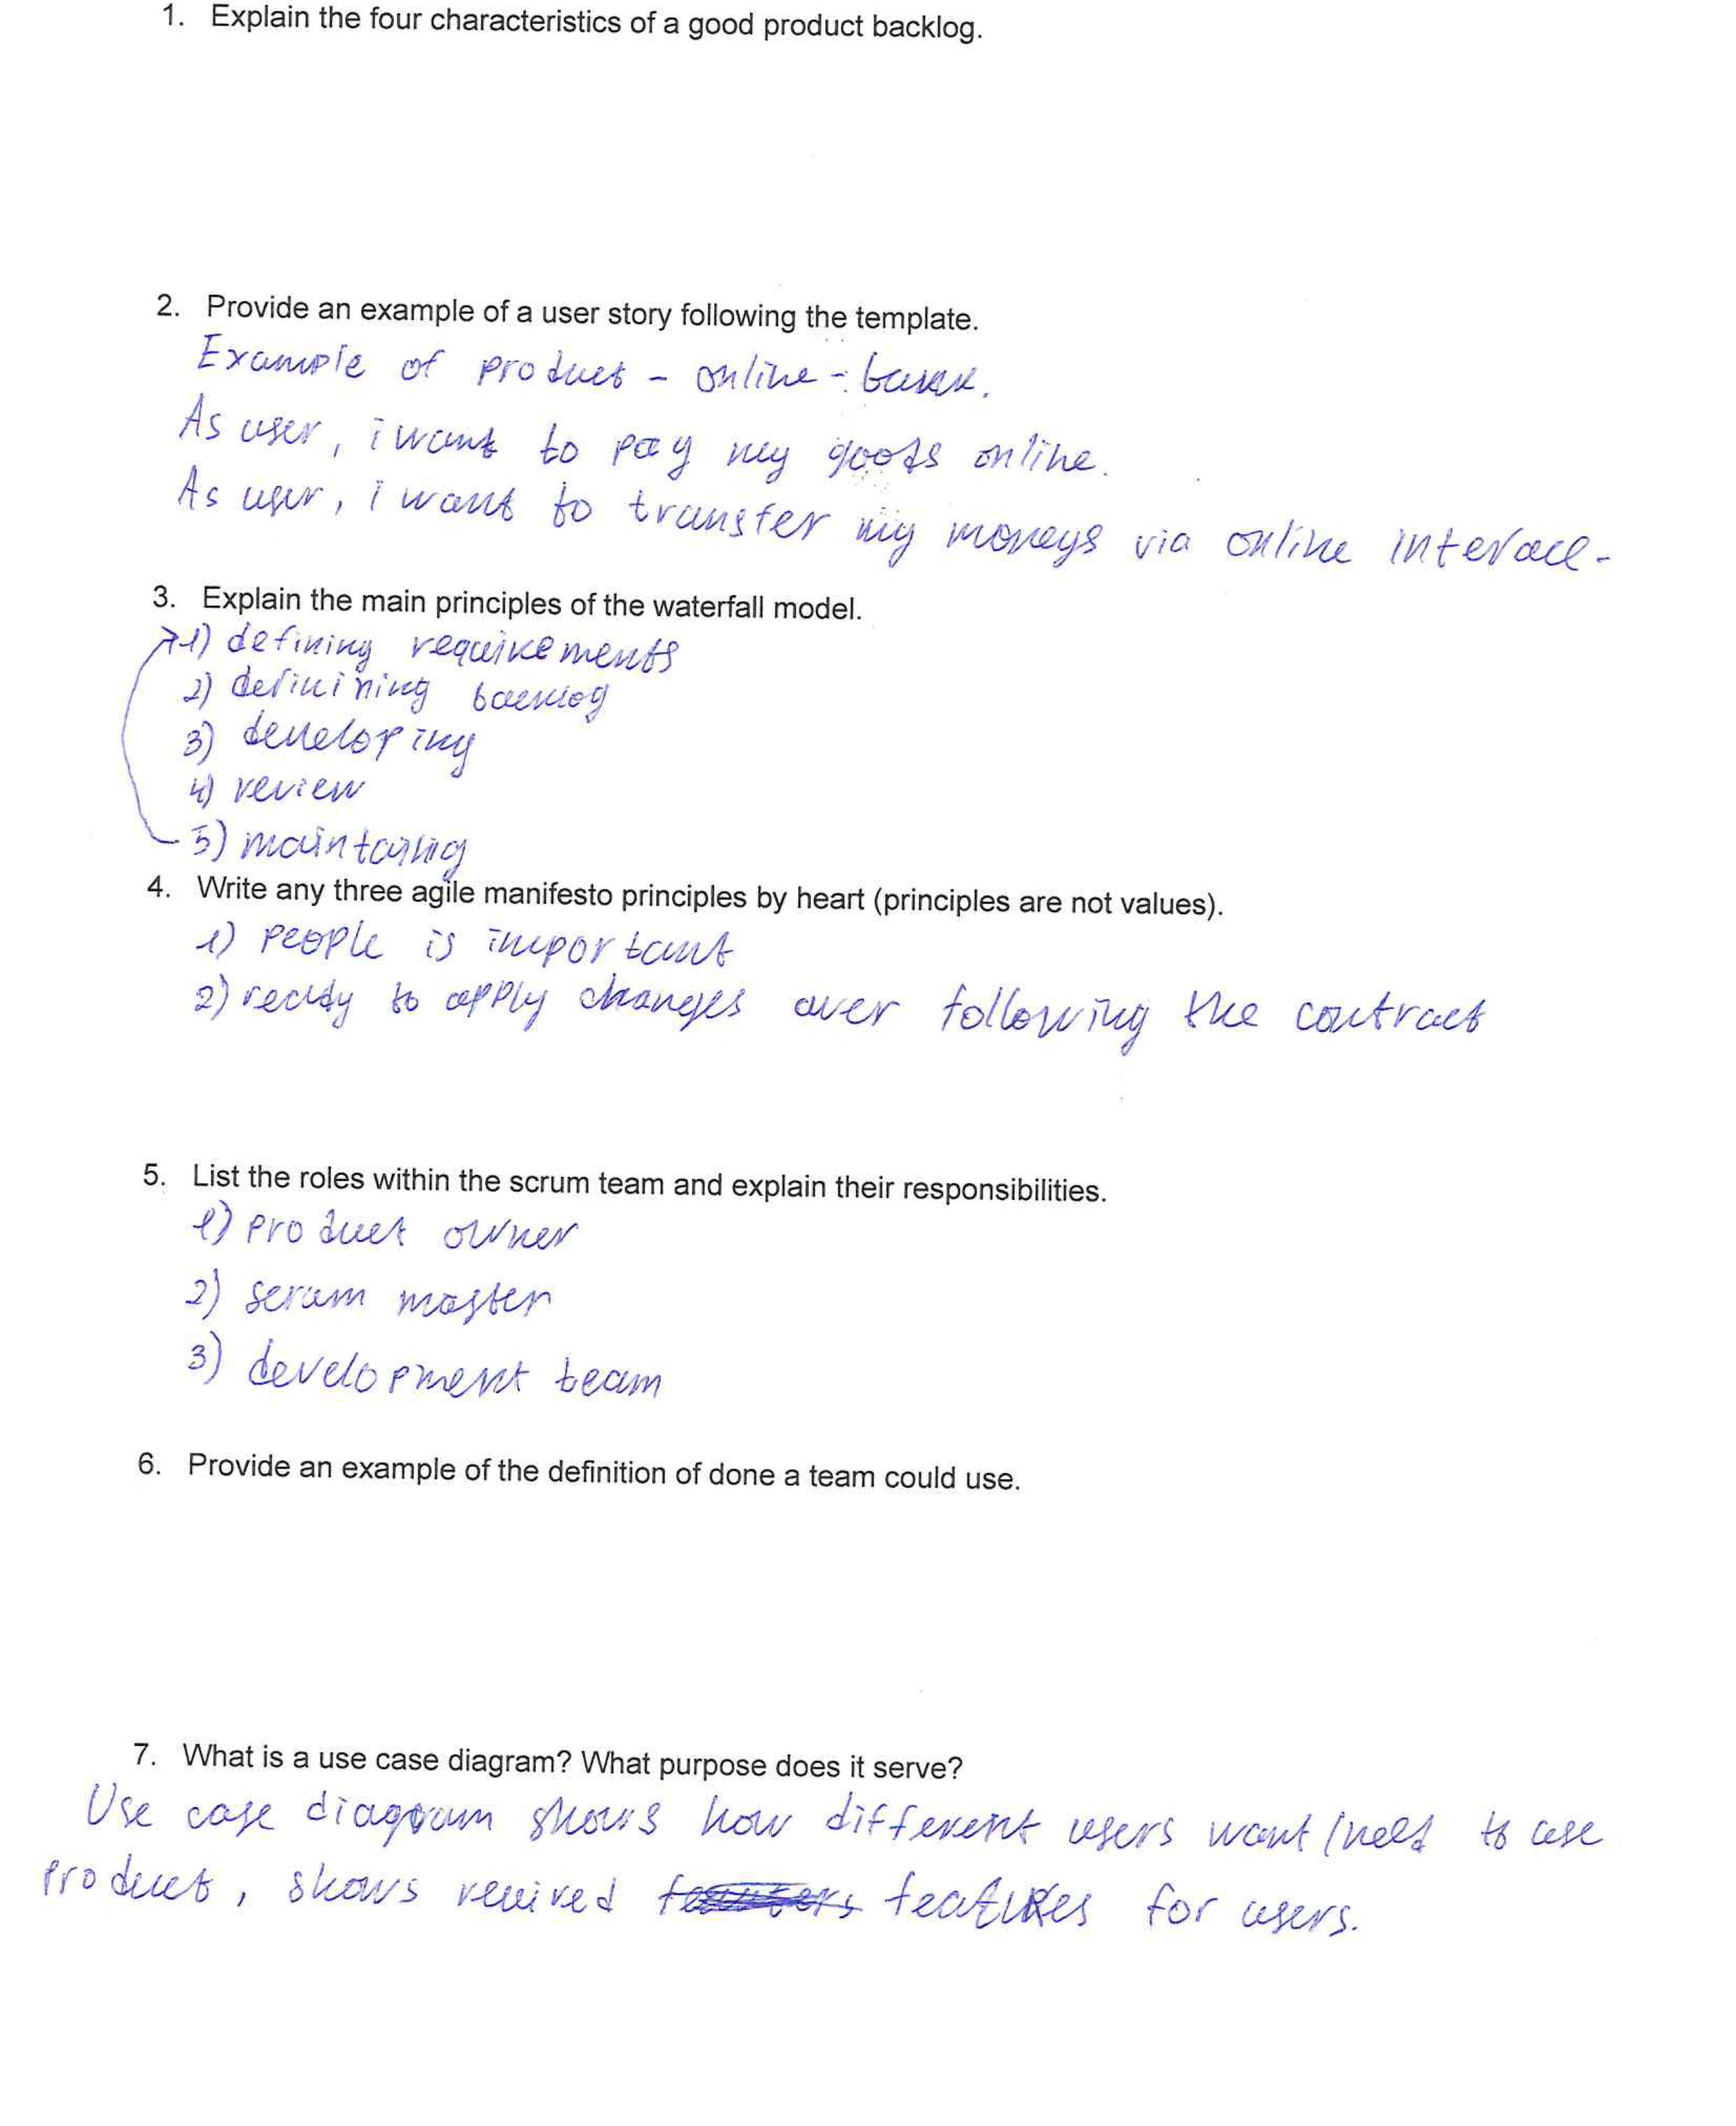 1. Explain the four characteristics of a good product backlog.
2. Provide an example of a user story following the template.
Example of product - online - bank.
As user, i want to pay my goods online.
As user, i want to transfer my moneys via online interace.
3. Explain the main principles of the waterfall model.
1) defining requirements
2) definining backlog
3) developing
4) review
5) maintaing
4. Write any three agile manifesto principles by heart (principles are not values).
1) people is important
2) ready to apply changes over following the contract
5. List the roles within the scrum team and explain their responsibilities.
1) product owner
2) scrum master
3) development team
6. Provide an example of the definition of done a team could use.
7. What is a use case diagram? What purpose does it serve?
Use case diagram shows how different users want/need to use
product, shows features for users.